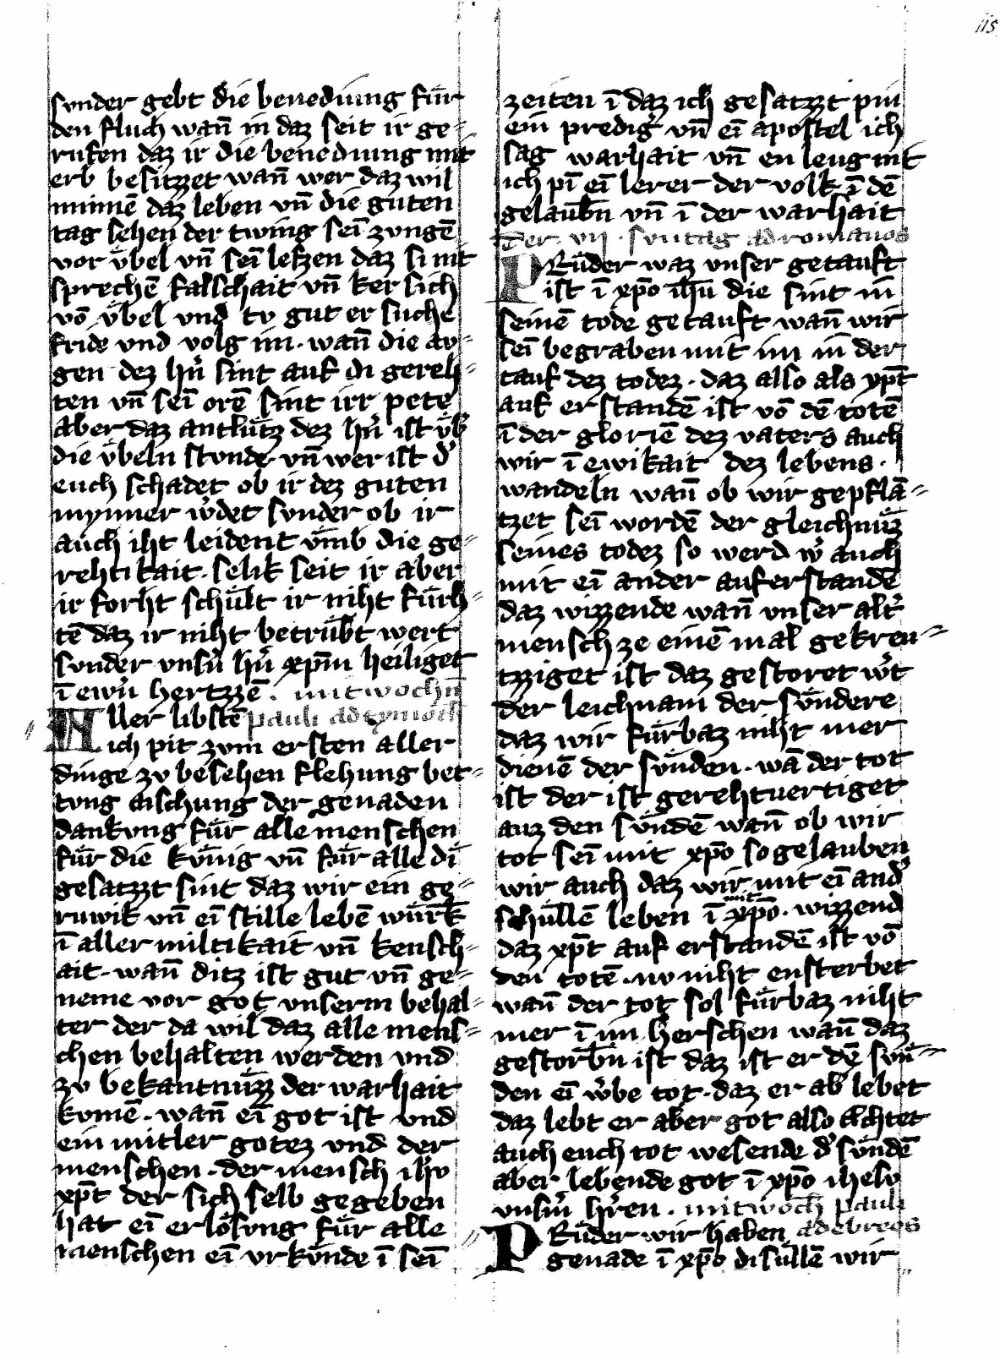 115
sunder gebt die benediung fuͤr
den fluch wañ in daz seit ir ge⸗
rufen daz ir die benediung mit
erb besitzzet wañ wer daz wil
minnē daz leben vn̄ die guten
tag sehen der twing sei᷑ zungē
vor uͤbel vn̄ sei᷑ lefzen daz si nit
sprechē falschait vn̄ ker sich
võ uͤbel vnd tv gut er suche
fride vnd volg im · wañ die av⸗
gen dez hr̄n sint auf di gereh⸗
ten vn̄ sein̄ orē sint irr pete
aber daz antluͤtz dez hr̄n ist uͤb̾
die uͤbeln stunde vn̄ wer ist d̾
euch schadet ob ir dez guten
mynner w̾det sunder ob ir
auch iht leident uͤmb die ge⸗
rehtikait · selik seit ir aber
ir forht schuͤlt ir niht fuͤrh⸗
tē daz ir niht betruͤbt wert
sunder vnsn̄ hr̄n xp̄m heiliget
ī ewn̄ hertzzē · mitwochn̄
Aller libstē pauli ad tymoth̄
ich pit zvm ersten aller
dinge zv besehen flehung bet⸗
tvng aischung der genaden
dankvng fuͤr alle menschen
fuͤr die kuͤnig vn̄ fuͤr alle di
gesatzzt sint daz wir ein ge⸗
ruwik vn̄ ein̄ stille lebē wuͤrk̄
ī aller miltikait vn̄ keusch⸗
ait · wañ ditz ist gut vn̄ ge⸗
neme vor got vnserm behal⸗
ter der da wil daz alle mens⸗
chen behalten werden vnd
zv bekantnuͤzz der warhait
kvmē · wañ ein̄ got ist vnd
ein mitler gotez vnd der
menschen · der mensch ihv
xp̄t der sich selb gegeben
hat ein̄ erloͤsvng fuͤr alle
menschen ein̄ vrkuͤnde ī sein̄
zeiten ī daz ich gesatzzt pin
ein predig̾ vn̄ ein̄ apostel ich
sag warhait vn̄ en leug nit
ich pī ein̄ lerer der volk ī dē
gelaubn̄ vn̄ ī der warhait
Der · vij · svntag ad romanos
PRuͤder waz vnser getauft
ist ī xp̄o ih̄u die sint in
seinē tode getauft wañ wir
sein̄ begraben mit im in der
tauf dez todez · daz also als xp̄t
auf erstandē ist võ dē totē
ī der gloriē dez vaters auch
wir ī ewikait dez lebens ·
wandeln wañ ob wir gepflā⸗
tzet sein̄ wordē der gleichnuͤzz
seines todez so werd w̾ auch
mit ein̄ ander auferstandē
daz wizzende wañ vnser alt̾
mensch ze einē mal gekreu⸗
tzziget ist daz gestoret w̾t
der leichnam der suͤndere
daz wir fuͤrbaz niht mer
dienē der suͤnden · wā der tot
ist der ist gerehtvertiget
auz den suͤndē wañ ob wir
tot sein̄ mit xp̄o so gelauben
wir auch daz wir mit ein̄ and̾
schuͤllē leben ī mit xp̄o · wizzend
daz xp̄t auf erstandē ist võ
den totē · nv niht ensterbet
wañ der tot sol fuͤrbaz niht
mer ī im herschen wañ daz
gestorbn̄ ist daz ist er dē suͤn⸗
den ein̄ w̾be tot · daz er ab̾ lebet
daz lebt er aber got also Echtet
auch euch tot wesende d̾ suͤndē
aber lebende got ī xp̄o ihesv
vnsm̄ hr̄ren · mitwoch pauli
PRuͤder wir haben ad ebreos
genade ī xp̄o di suͤllē wir